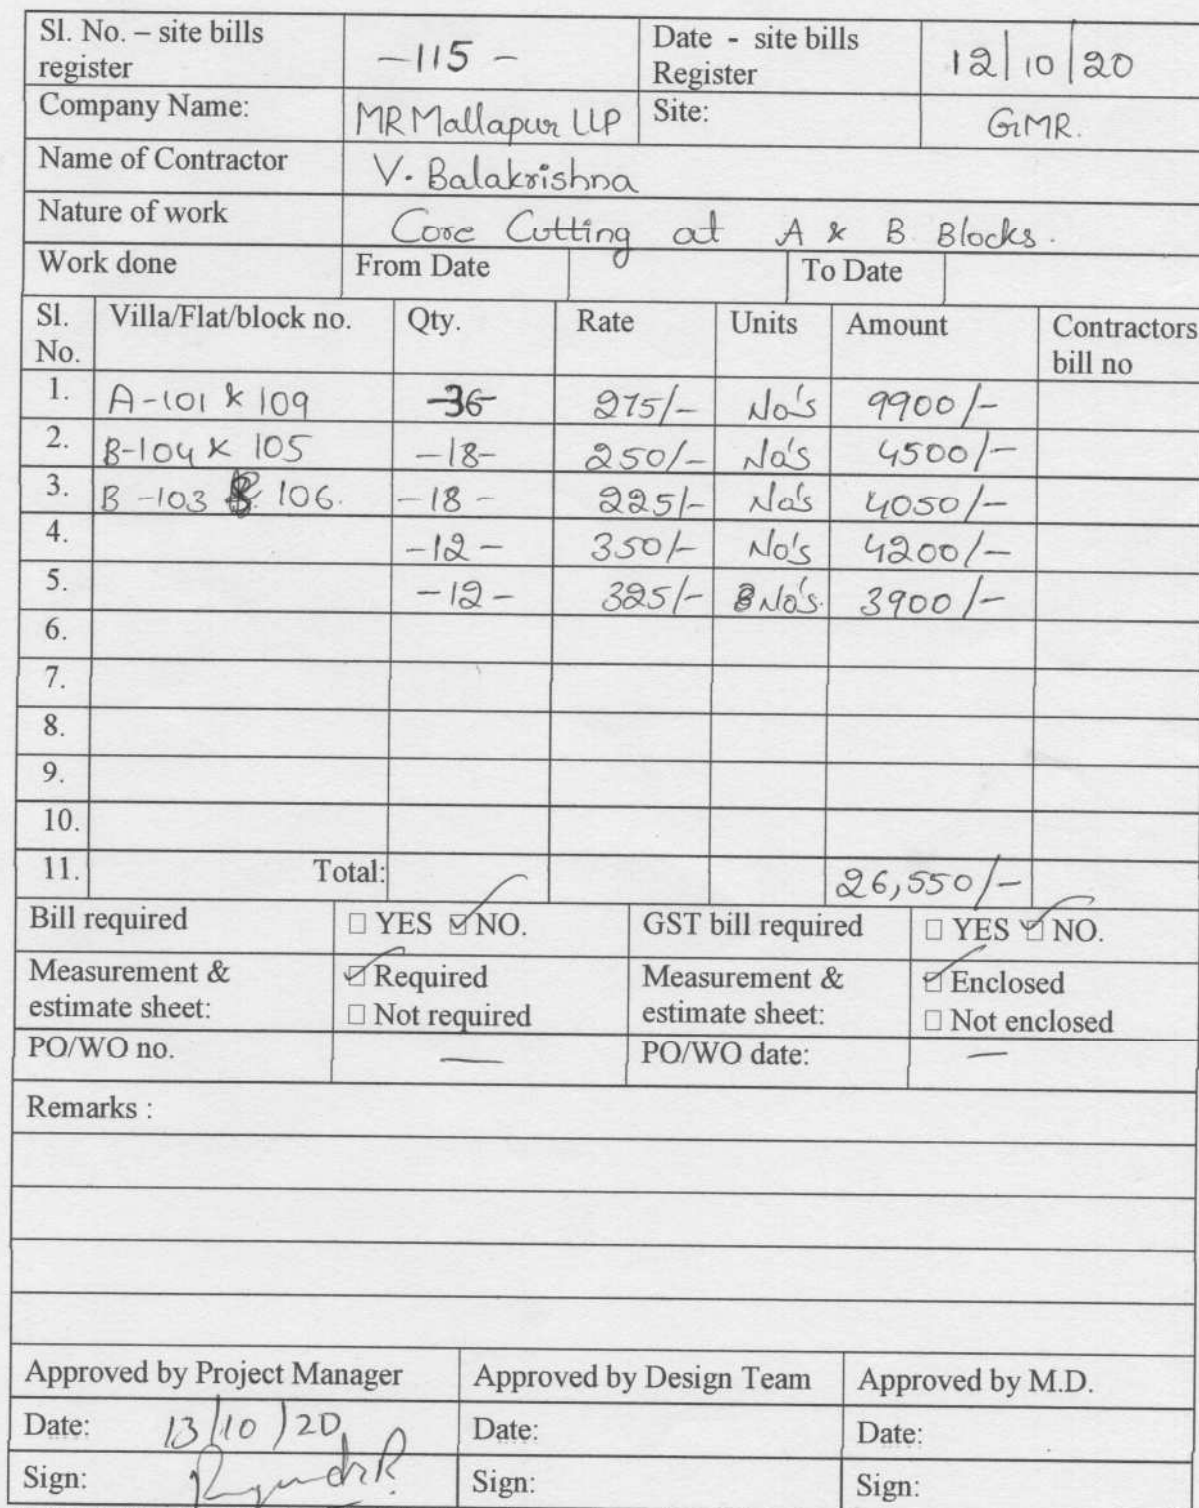 Sl. No. – site bills register -115- Date - site bills Register 12/10/20
Company Name: MR Mallapur LLP Site: GMR.
Name of Contractor V. Balakrishna
Nature of work Core Cutting at A & B Blocks.
Work done From Date To Date
Sl. No. Villa/Flat/block no. Qty. Rate Units Amount Contractors bill no
1. A-101 & 109 -36- 275/- No's 9900/-
2. B-104 & 105 -18- 250/- No's 4500/-
3. B-103 & 106. -18- 225/- No's 4050/-
4. -12- 350/- No's 4200/-
5. -12- 325/- No's. 3900/-
6.
7.
8.
9.
10.
11. Total: 26,550/-
Bill required ☐ YES ☑ NO. GST bill required ☐ YES ☑ NO.
Measurement & estimate sheet: ☑ Required ☐ Not required Measurement & estimate sheet: ☑ Enclosed ☐ Not enclosed
PO/WO no. — PO/WO date: —
Remarks :
Approved by Project Manager Approved by Design Team Approved by M.D.
Date: 13/10/20 Date: Date:
Sign: Sign: Sign: